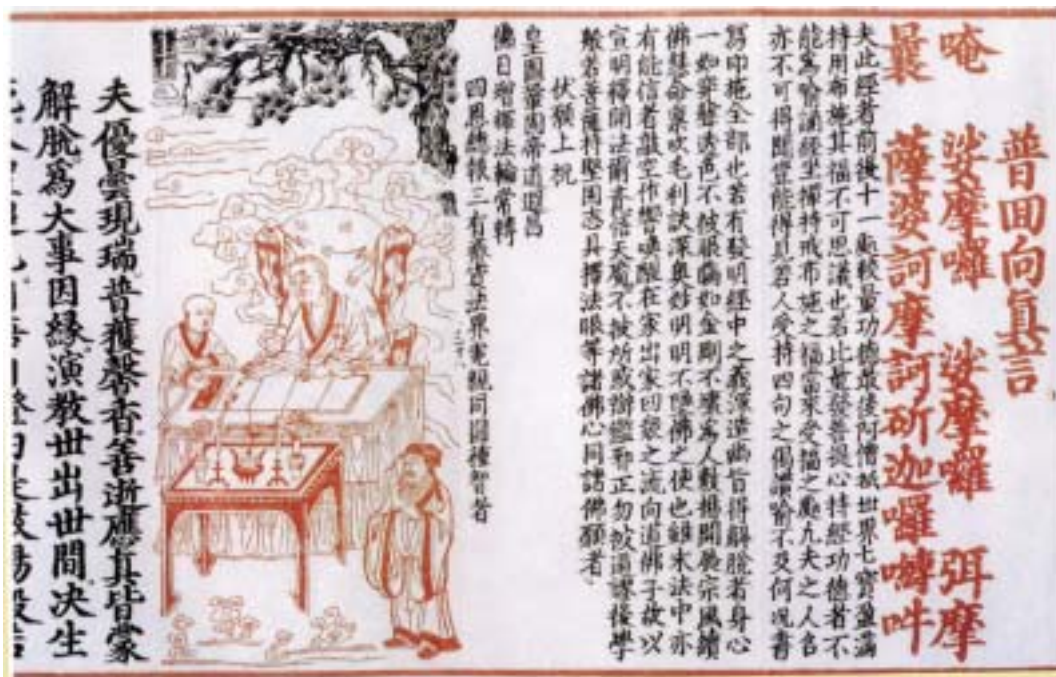 普回向真言
唵 娑摩囉 娑摩囉 弭摩
曩 薩婆訶摩訶斫迦囉嚩吽
夫此經者前後十一處較量功德最後阿僧祇世界七寶盈滿
持用布施其福不可思議也若比量發菩提心持經功德者不
能為喻誦經坐禪持戒布施之福當來受福之處凡夫之人名
亦不可得聞豈能得見若人受持四句之偈讚喻不及何况書
寫印施全部也若有發明經中之義深達幽旨得解脫者身心
一如穿聲透色不被眼瞞如金剛不壞為人敷揚開廣宗風續
佛慧命稟吹毛利訣深奧妙明明不墮佛之使也雖末法中亦
有能信者敲空作響喚醒在家出家回袈之流向道佛子故以
宣明釋開法爾青信天魔不被所惑辨鑑邪正勿被過謬後學
般若菩薩持堅固志具擇法眼等諸佛心同諸佛願者
伏願上祝
皇圖鞏固帝道遐昌
佛日增輝法輪常轉
四恩總報三有法界冤親同圓種智者
夫優曇現瑞普獲馨香善逝應真皆蒙
解脫為大事因緣演教世出世間决生